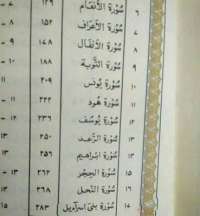 ٦ سُوْرَةُ الْأَنْعَام ١٢٩ ٧ -
٧ سُوْرَةُ الْأَعْرَاف ١٥٢ ٨ -
٨ سُوْرَةُ الْأَنْفَال ١٧٨ ٩ -
٩ سُوْرَةُ التَّوْبَة ١٨٨ ١٠ -
١٠ سُوْرَةُ يُونُس ٢٠٩ ١١
١١ سُوْرَةُ هُود ٢٢٢ ١١ -
١٢ سُوْرَةُ يُوسُف ٢٣٦ ١٢ -
١٣ سُوْرَةُ الرَّعْد ٢٥٠ ١٣
١٤ سُوْرَةُ اِبْرٰهِيْم ٢٥٦ ١٣
١٥ سُوْرَةُ الْحِجْر ٢٦٢ ١٣ -
١٦ سُوْرَةُ النَّحْل ٢٦٨ ١٤
١٧ سُوْرَةُ بَنِيْ اِسْرَآءِيْل ٢٨٣ ١٥